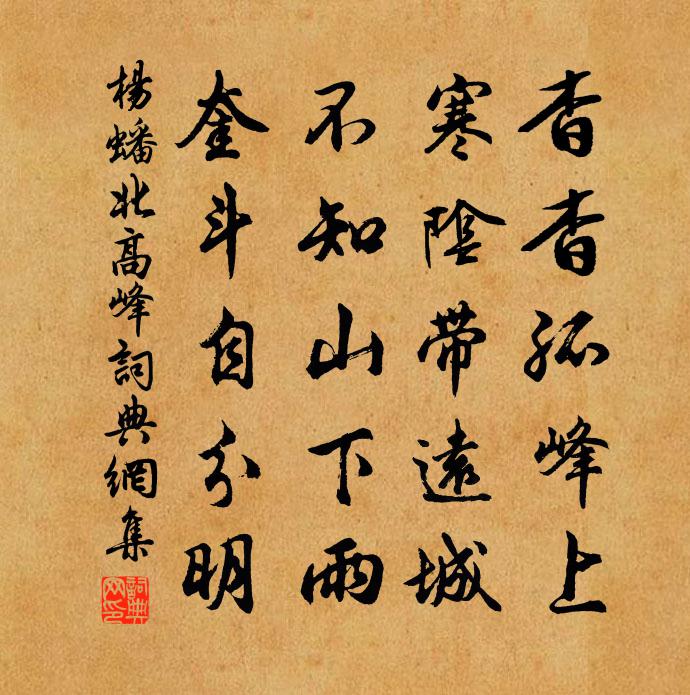 杳杳孤峰上
寒陰帶遠城
不知山下雨
奎斗自分明
楊蟠北高峰詞典網集
詞典
网印